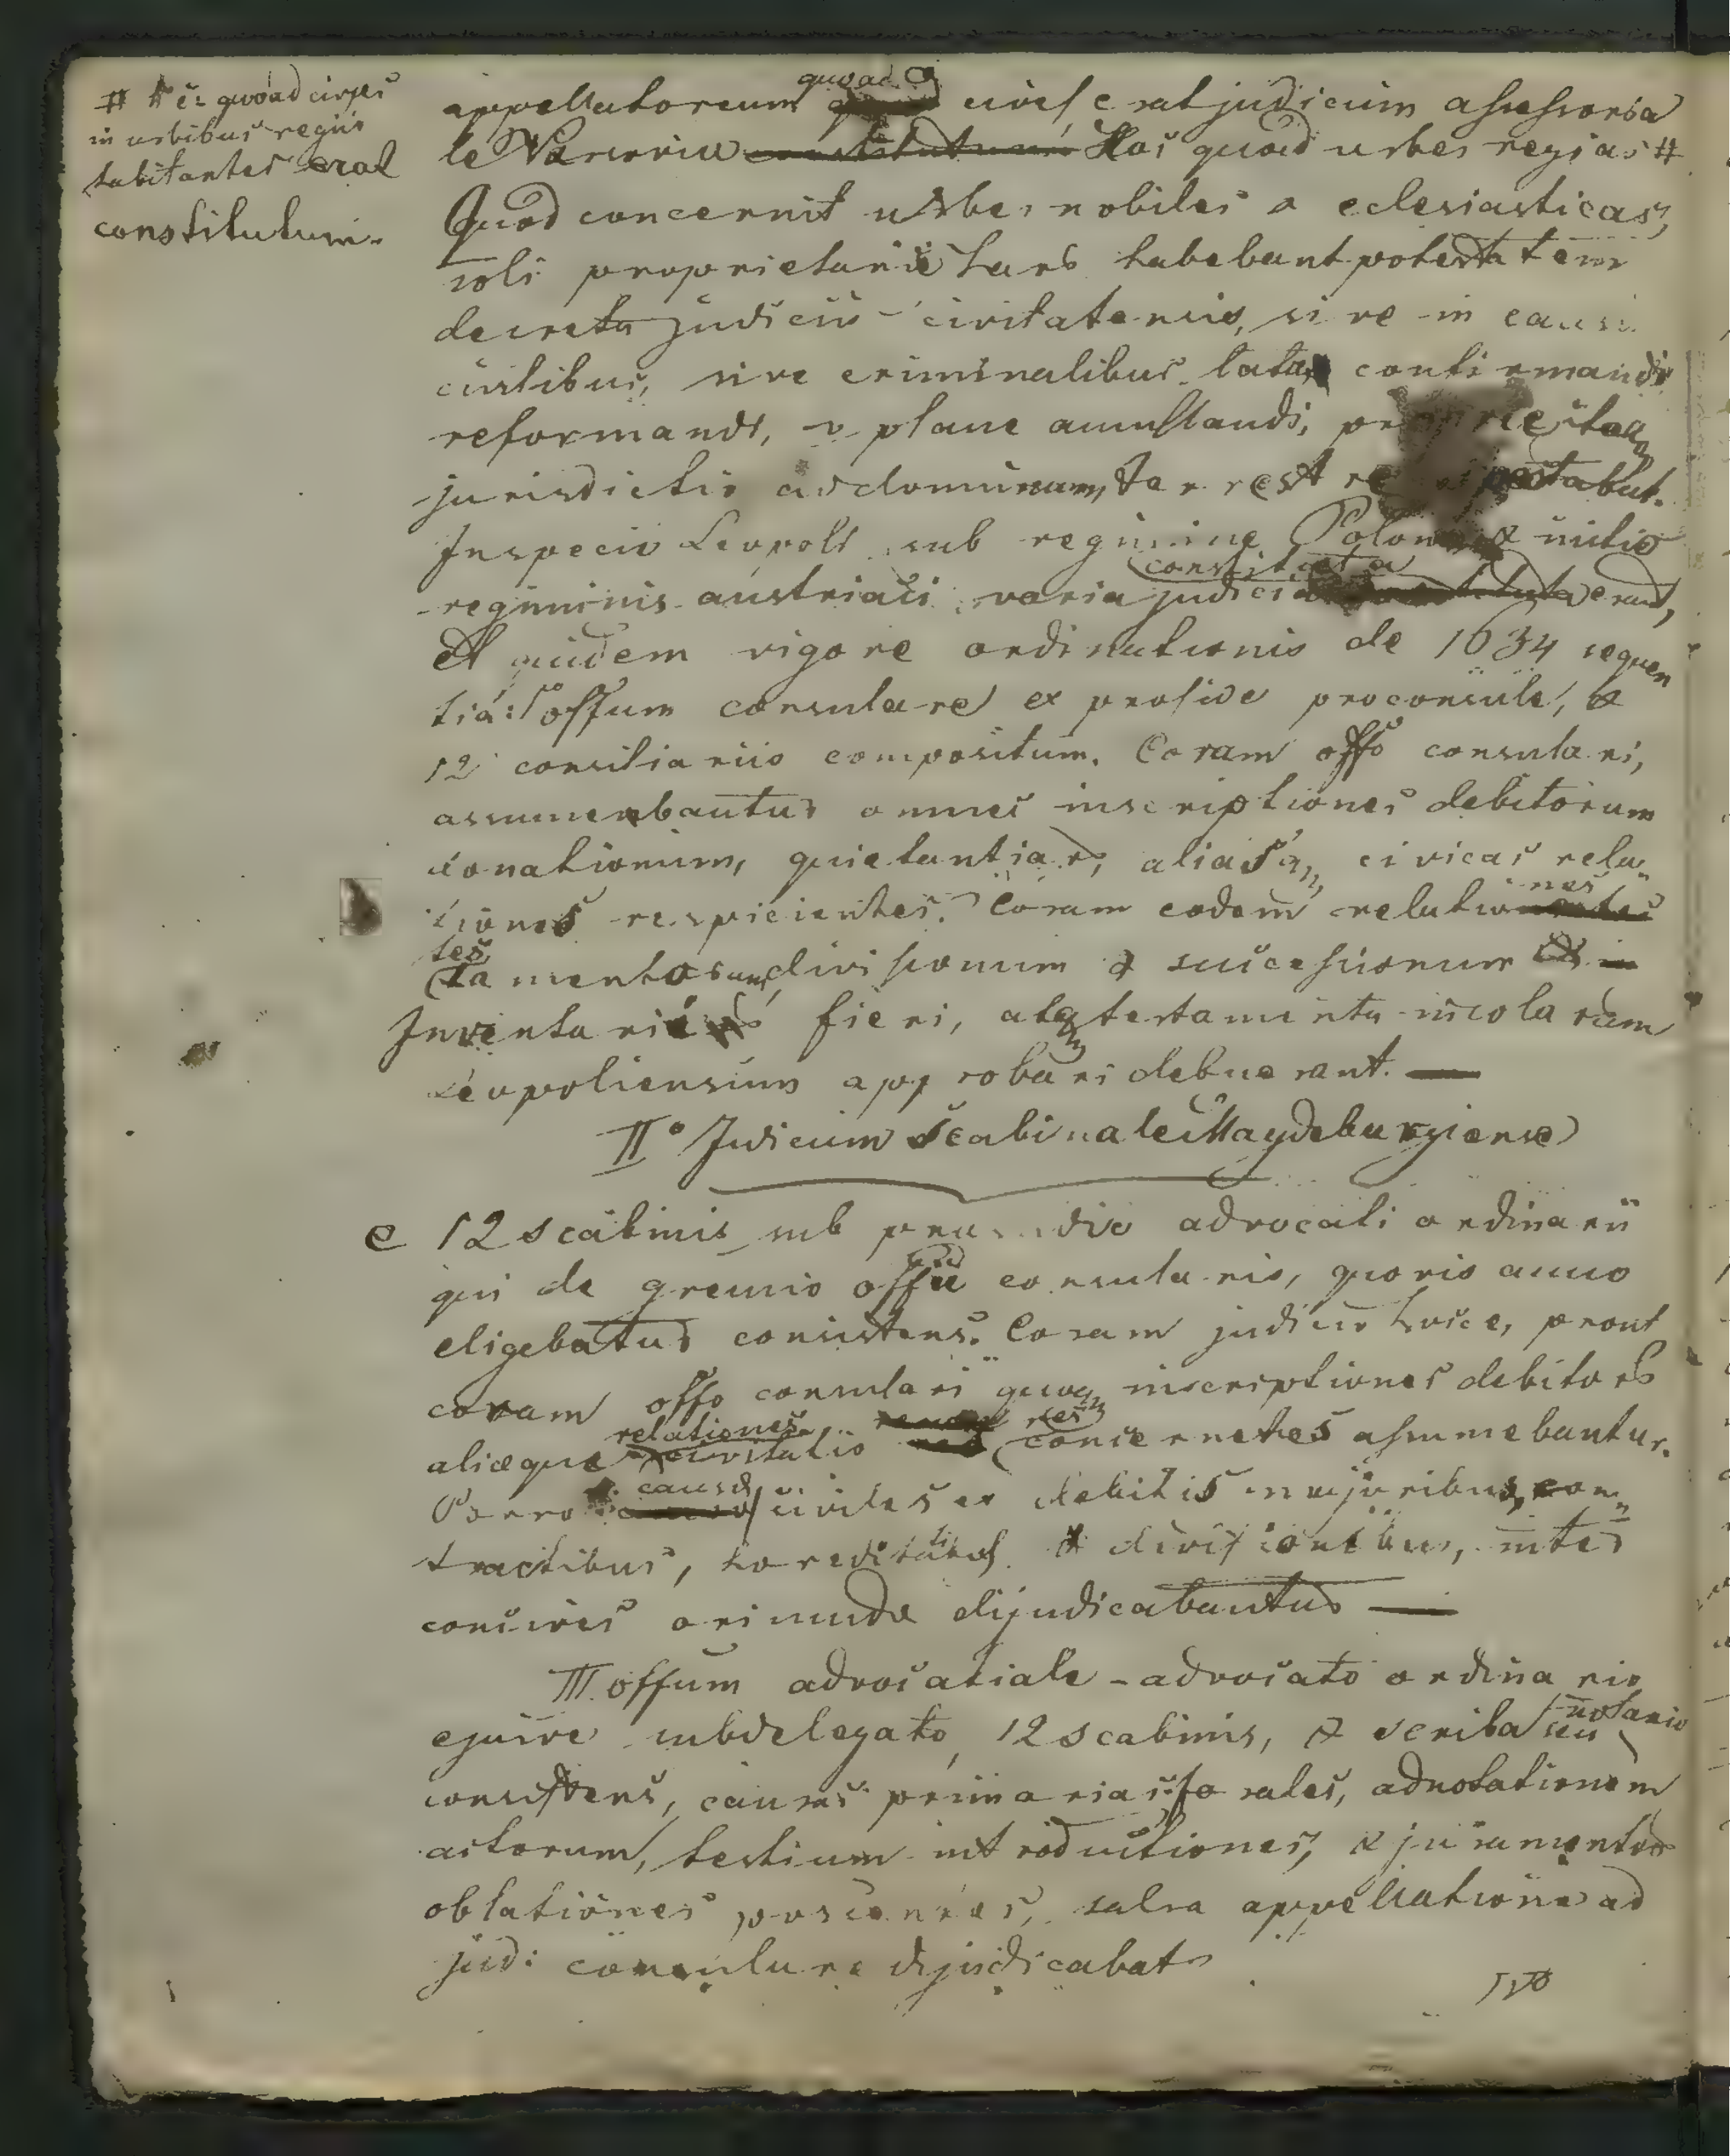 # # i: quoad cives
in urbibus regiis
habitantes erat
constitutum.
appellatorium quoad cives erat judicium assessoria
le Varsoviæ Hoc quoad urbes regias #
Quod concernit urbes nobiles a eclesiasticas,
soli proprietarii harb habebant potestatem
decreta judicii civitatensis, sive in causi
civilibus, sive criminalibus lata confirmandi
reformandi, v plane annullandi,
jurisdictio ad dominum, terrest
In specie Leopoli sub regimine Polon & initio
regiminis austriaci varia judicia constituta erant,
et quidem vigore ordinationis de 1634 sequen
tia: 1º offum consulare ex preside proconsule, &
12 consiliariis compositum. Coram offo consulari,
assumebantur omnes inscriptiones debitorum
donationum, quietantiar, aliasq, civicas rela
tiones respicientes. Coram eodem relationes
tes
tamentorum, divisionum & successionum
Inventaria fieri, atq testamenta incolarum
Leopoliensium approbari debuerant. —
IIº Judicium Scabinale Magdeburgiense
e 12 scabinis sub præsidio advocati ordinarii
qui de gremio offii consularis, quovis anno
eligebatur consistens. Coram judicio hocce, prout
coram offo consulari quoq inscriptiones debitorb
aliæque relationes civitatis res concernetes assumebantur.
Porro causæ civiles ex debitis majoribus, con
tractibus, hereditatibs & divisionibus, inter
concives oriundæ dijudicabantur —
III. offum advocatiale - advocato ordinario
ejusve subdelegato, 12 scabinis, & scriba seu notario
consistens, causas primarias forales, adnotationem
actorum, testium introductiones, & juramentor
oblationes poscentes, salva appellatione ad
judi consulare dijudicabat
IVo